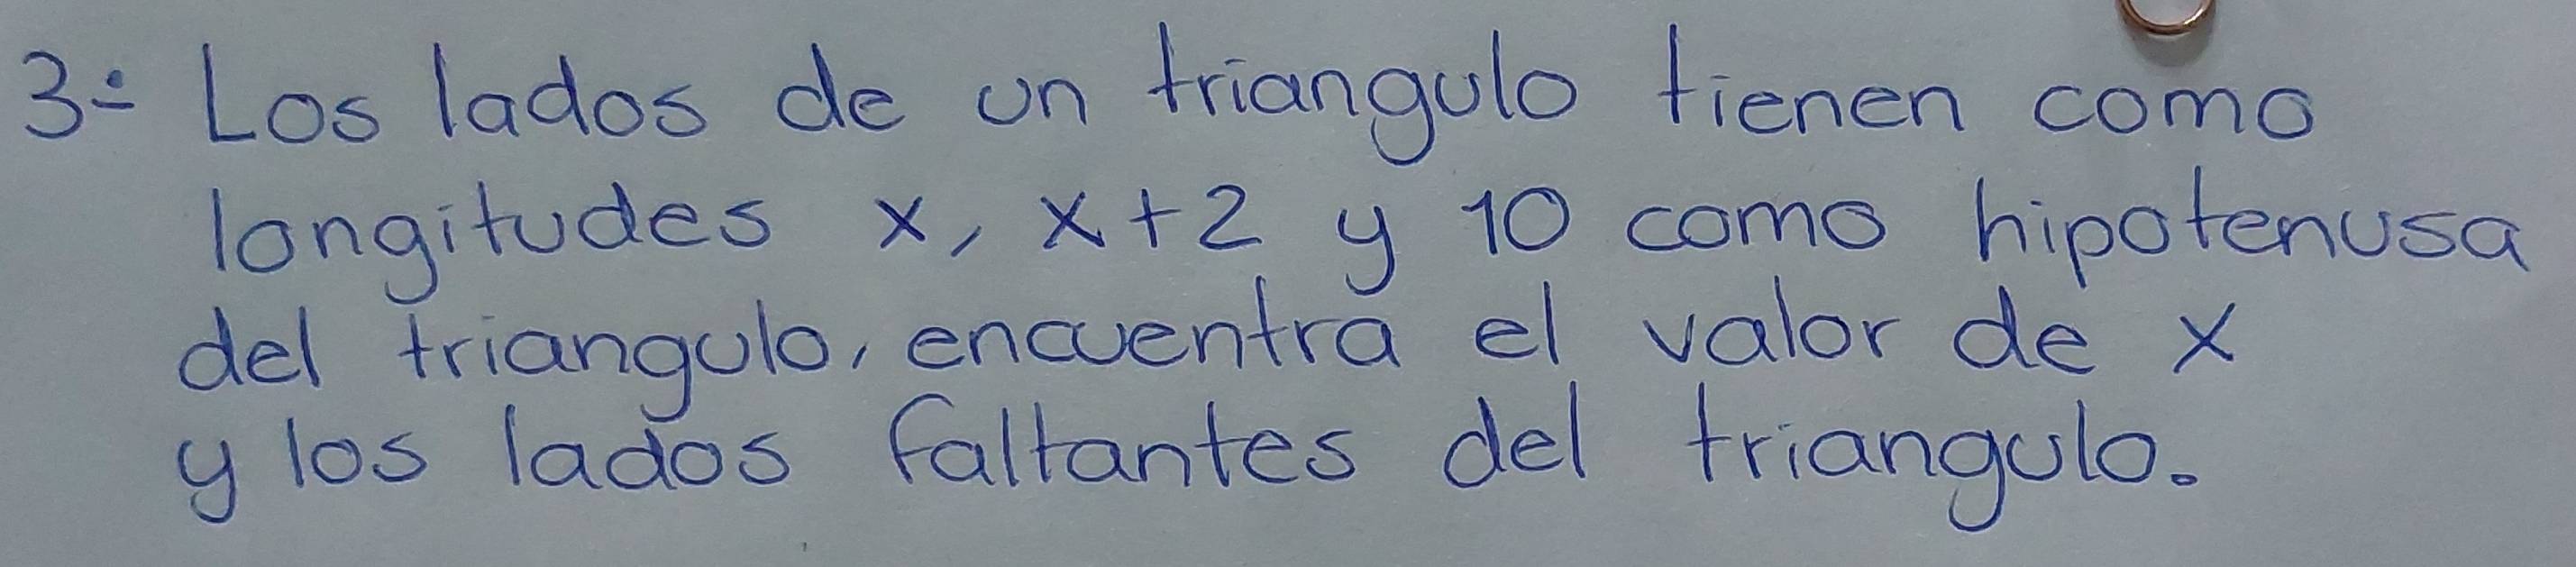 3.- Los lados de un triangulo tienen como
longitudes x, x+2 y 10 como hipotenusa
del triangulo, encuentra el valor de x
y los lados faltantes del triangulo.